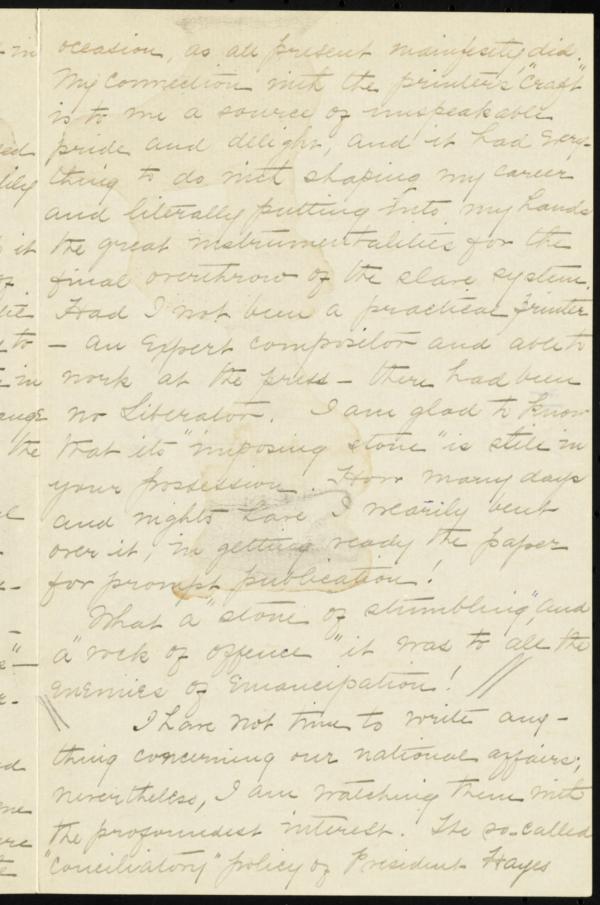 occasion, as all present manifestly did.
My connection with the printer's "craft"
is to me a source of unspeakable
pride and delight, and it had every-
thing to do with shaping my career
and literally putting into my hands
the great instrumentalities for the
final overthrow of the slave system.
Had I not been a practical printer
— an expert compositor and able to
work at the press — there had been
no Liberator. I am glad to know
that its "imposing stone" is still in
your possession. How many days
and nights have I wearily bent
over it, in getting ready the paper
for prompt publication!
What a "stone of stumbling", and
a "rock of offence" it was to all the
enemies of Emancipation! //
I have not time to write any-
thing concerning our national affairs;
nevertheless, I am watching them with
the profoundest interest. The so-called
"conciliatory" policy of President Hayes